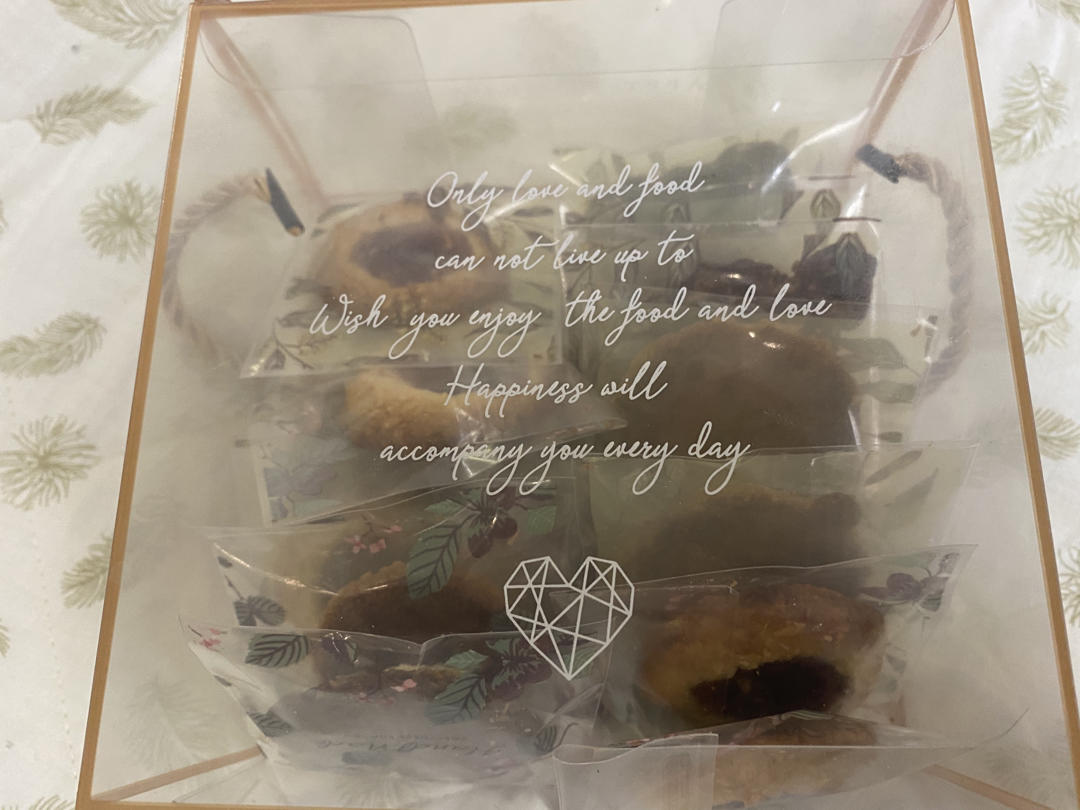 Only love and food
can not live up to
Wish you enjoy the food and love
Happiness will
accompany you every day